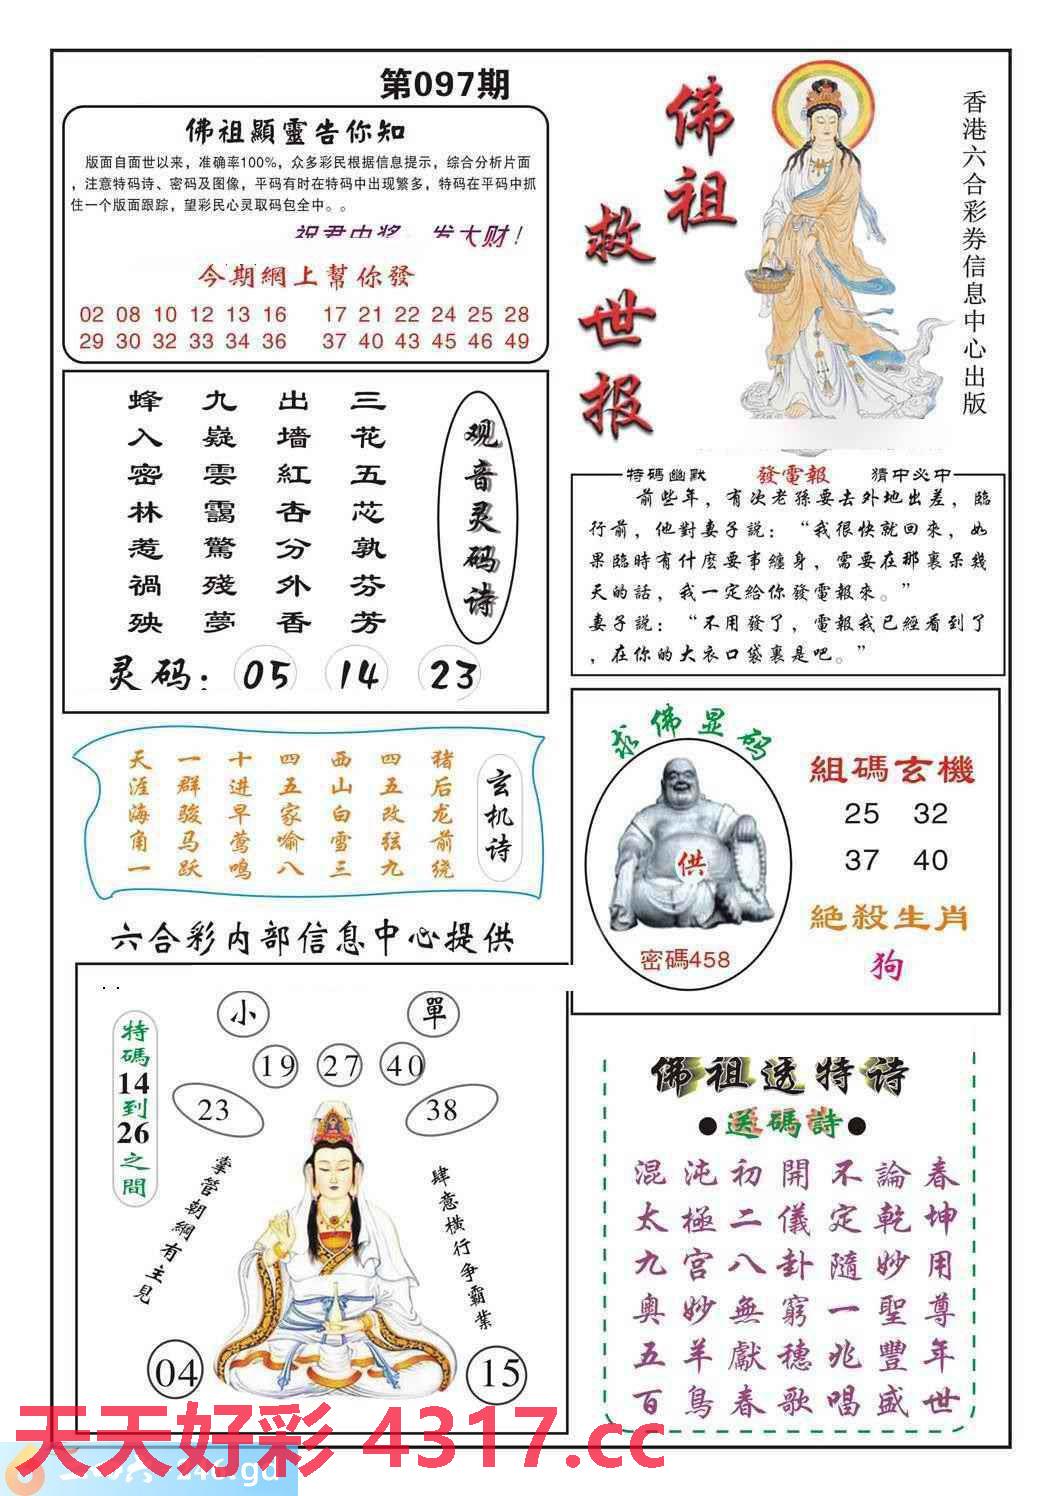 第097期
佛祖顯靈告你知
版面自面世以来，准确率100%，众多彩民根据信息提示，综合分析片面
，注意特码诗、密码及图像，平码有时在特码中出现繁多，特码在平码中抓
住一个版面跟踪，望彩民心灵取码包全中。。
祝君中奖 发大财！
今期網上幫你發
02 08 10 12 13 16 17 21 22 24 25 28
29 30 32 33 34 36 37 40 43 45 46 49
佛祖
救世报
香港六合彩券信息中心出版
观音灵码诗
三花五芯孰芬芳
出墙紅杏分外香
九嶷雲靄驚殘夢
蜂入密林惹禍殃
灵码： 05 14 23
特碼幽默 發電報 猜中必中
前些年，有次老孫要去外地出差，臨
行前，他對妻子説：“我很快就回來，如
果臨時有什麽要事纏身，需要在那裏呆幾
天的話，我一定給你發電報來。”
妻子説：“不用發了，電報我已經看到了
，在你的大衣口袋裏是吧。”
玄机诗
猪后龙前绕
四五改弦九
西山白雪三
四五家喻八
十进早莺鸣
一群骏马跃
天涯海角一
求佛显码
供
密碼458
組碼玄機
25 32
37 40
絕殺生肖
狗
六合彩内部信息中心提供
小 單
19 27 40
23 38
特碼14到26之間
掌管朝綱有主見
肆意橫行争霸業
04 15
佛祖透特诗
●送碼詩●
混沌初開不論春
太極二儀定乾坤
九宮八卦隨妙用
奥妙無窮一聖尊
五羊獻穗兆豐年
百鳥春歌唱盛世
天天好彩 4317.cc
246.gd